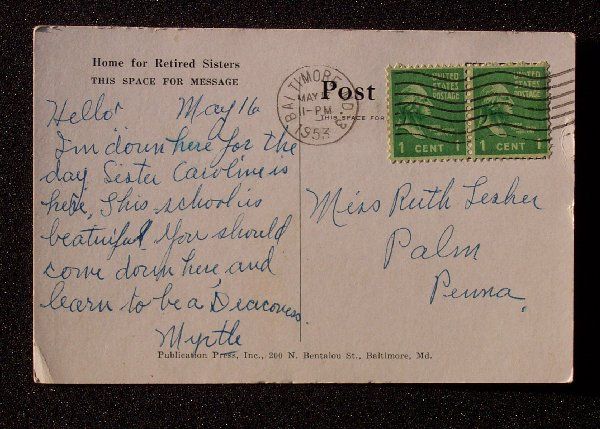 Home for Retired Sisters
THIS SPACE FOR MESSAGE
Hello May 16
I'm down here for the
day. Sister Caroline is
here, This school is
beatuiful. You should
come down here, and
learn to be a Deaconess.
Myrtle
BALTIMORE, MD. 3
MAY
11-PM
1953
Post
THIS SPACE FOR
UNITED
STATES
POSTAGE
1 CENT 1
UNITED
STATES
POSTAGE
1 CENT 1
Miss Ruth Lesher
Palm
Penna.
Publication Press, Inc., 200 N. Bentalou St., Baltimore, Md.